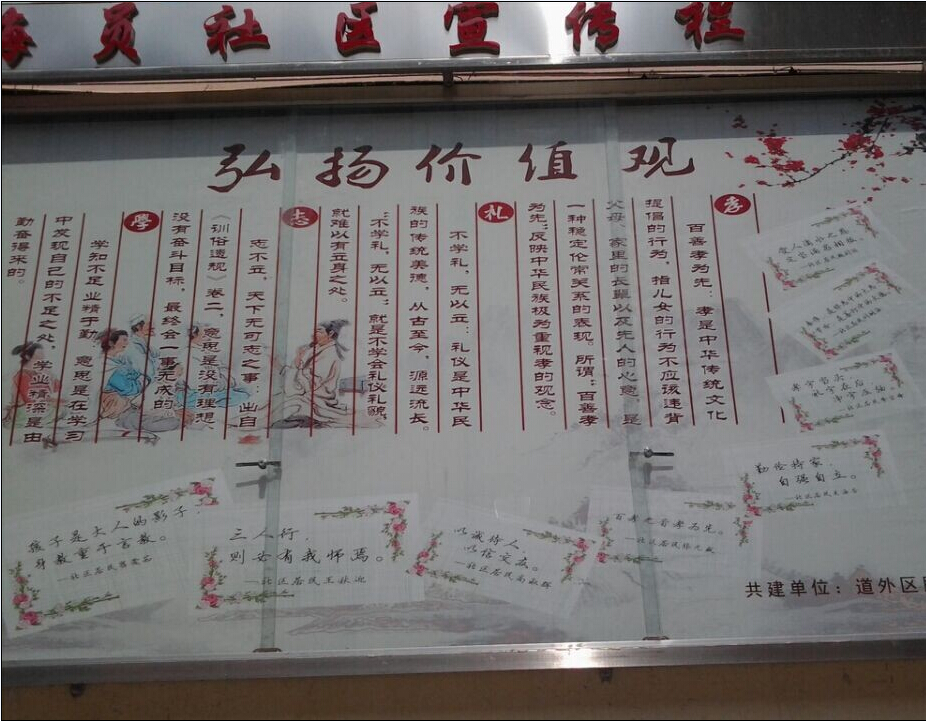 海员社区宣传栏
弘扬价值观
孝
百善孝为先：孝是中华传统文化
提倡的行为，指儿女的行为不应该违背
父母、家里的长辈以及先人的心意，是
一种稳定伦常关系的表现。所谓：百善孝
为先。反映中华民族极为重视孝的观念。
礼
不学礼，无以立：礼仪是中华民
族的传统美德，从古至今，源远流长。
“不学礼，无以立”：就是不学会礼仪礼貌，
就难以有立身之处。
志
志不立，天下无可志之事：出自
《训俗遗规》卷二，意思是没有理想、
没有奋斗目标，最终会一事无成的。
學
学知不足业精于勤：意思是在学习
中发现自己的不足之处，学业精深是由
勤奋得来的。
勤俭持家，
自强自立。
—社区居民
百善之首孝为先。
—社区居民
以诚待人，
以信交友。
—社区居民
三人行，
则必有我师焉。
—社区居民王秋迎
孩子是大人的影子，
身教重于言教。
—社区居民
共建单位：道外区